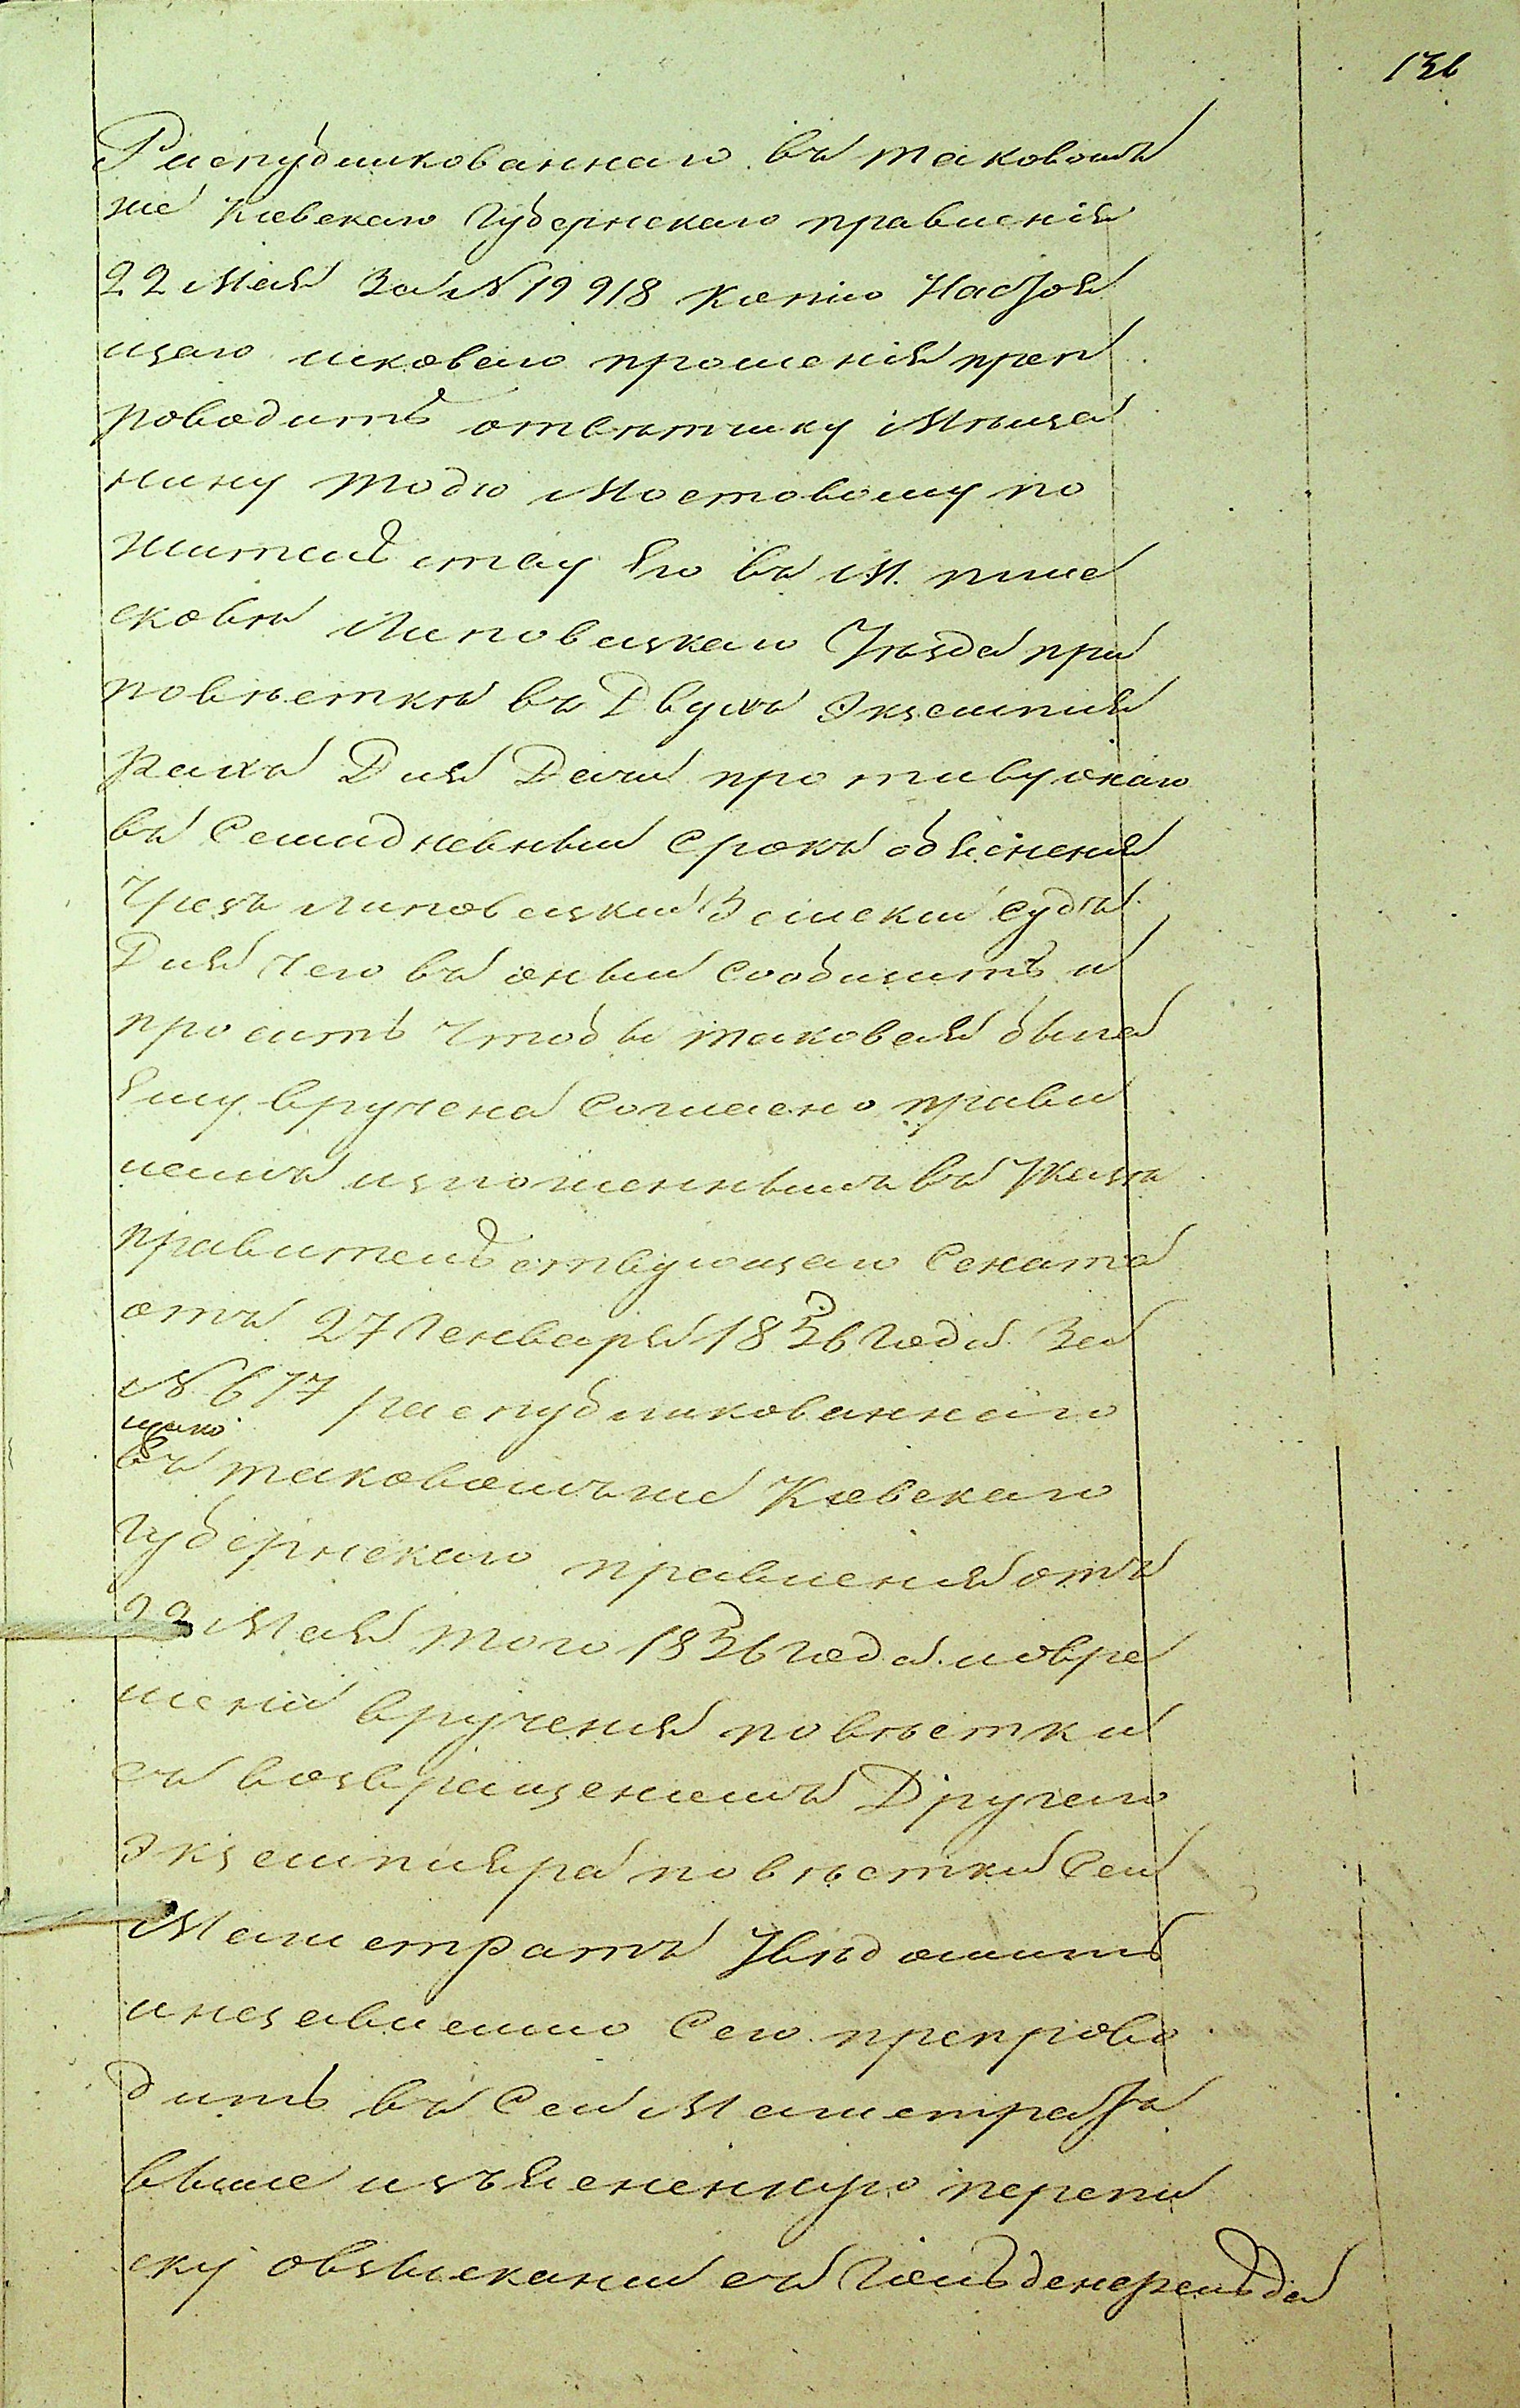 136
Распубликованнаго въ таковомъ
же Киевскаго Губернскаго правленія
22 Мая За № 19918 Копію Настоя
щаго исковаго прошенія преп
роводить ответчику Мѣща
нину Тодю Мостовому по
жительству Его въ М. Пліс
ковѣ Липовецкаго Уѣзда при
повѣсткѣ въ Двухъ Экземпля
рахъ Для Дачи противу онаго
въ Семидневный Срокъ объясненія
Чрезъ Липовецкий Земский Судъ
Для Чего въ оный Сообщить и
просить Чтобы таковая была
Ему вручена Согласно прави
ламъ изложеннымъ въ Указѣ
правительствующаго Сената
отъ 27 Генваря 1836 Года За
№ 677 распубликованнаго
въ таковомъ же Киевскаго
Губернскаго правленія отъ
22 Мая того 1836 Года. и овре
мени врученія повѣстки
съ возвращеніемъ Другаго
Экземпляра повѣстки Сей
Магистратъ Увѣдомить
инезавиемно Сего препрово
дить въ Сей Магистратъ
выше изъясненную перепи
ску овзысканіи съ Гольденфельда